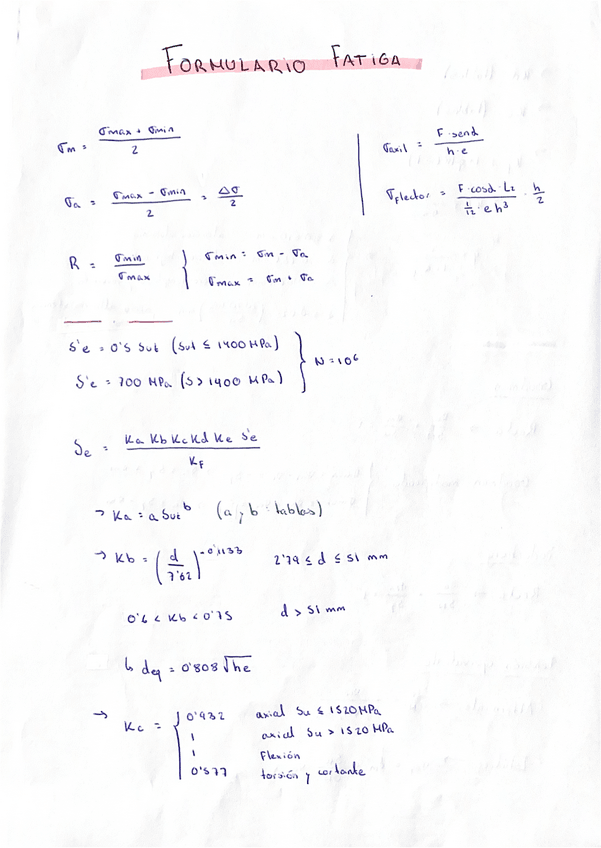 FORMULARIO FATIGA
σm = (σmax + σmin) / 2
σaxil = F·senα / h·e
σa = (σmax - σmin) / 2 = Δσ / 2
σFlector = F·cosα·L2 / (1/12·e h³) · h/2
R = σmin / σmax } σmin = σm - σa
σmax = σm + σa
S'e = 0'5 Sut (Sut ≤ 1400 MPa)
S'e = 700 MPa (S > 1400 MPa) } N = 10⁶
Se = Ka Kb Kc Kd Ke S'e / KF
→ Ka = a Sut^b (a y b : tablas)
→ Kb = (d / 7'62)^-0'1133 2'79 ≤ d ≤ 51 mm
0'6 < Kb < 0'75 d > 51 mm
↳ deq = 0'808 √he
→ Kc = { 0'932 axial Su ≤ 1520 MPa
1 axial Su > 1520 MPa
1 Flexión
0'577 torsión y cortante